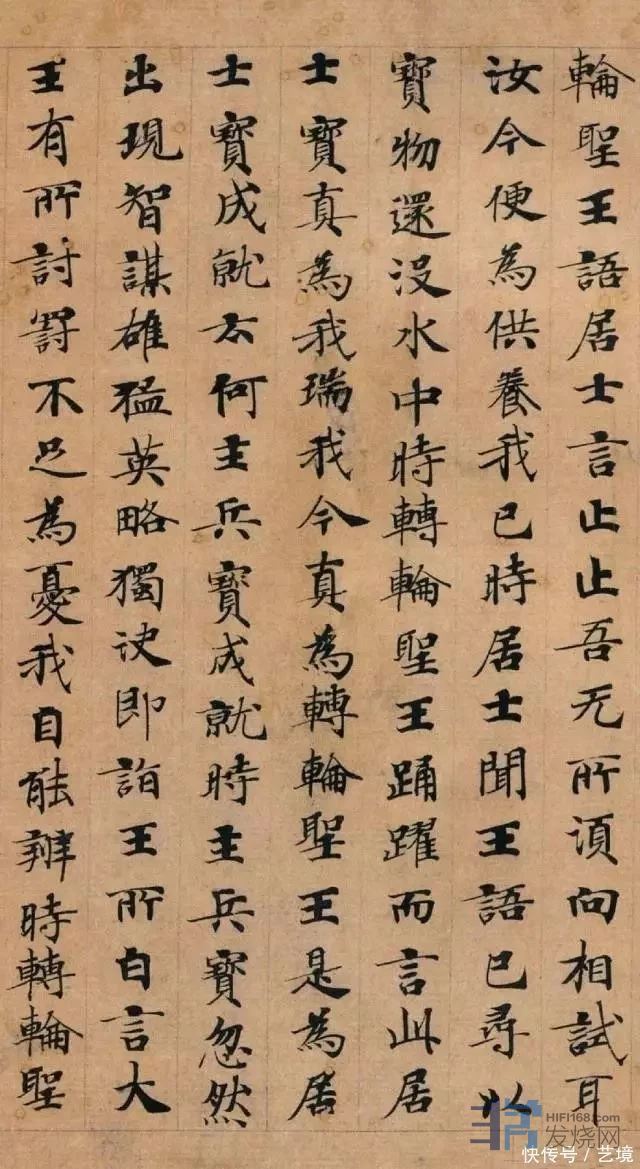 輪聖王語居士言止止吾无所須向相試耳
汝今便為供養我已時居士聞王語已尋以
寶物還没水中時轉輪聖王踊躍而言此居
士寶真為我瑞我今真為轉輪聖王是為居
士寶成就云何主兵寶成就時主兵寶忽然
出現智謀雄猛英略獨決即詣王所白言大
王有所討罰不足為憂我自能辦時轉輪聖
HIFI168.com
发烧网
快传号/艺境